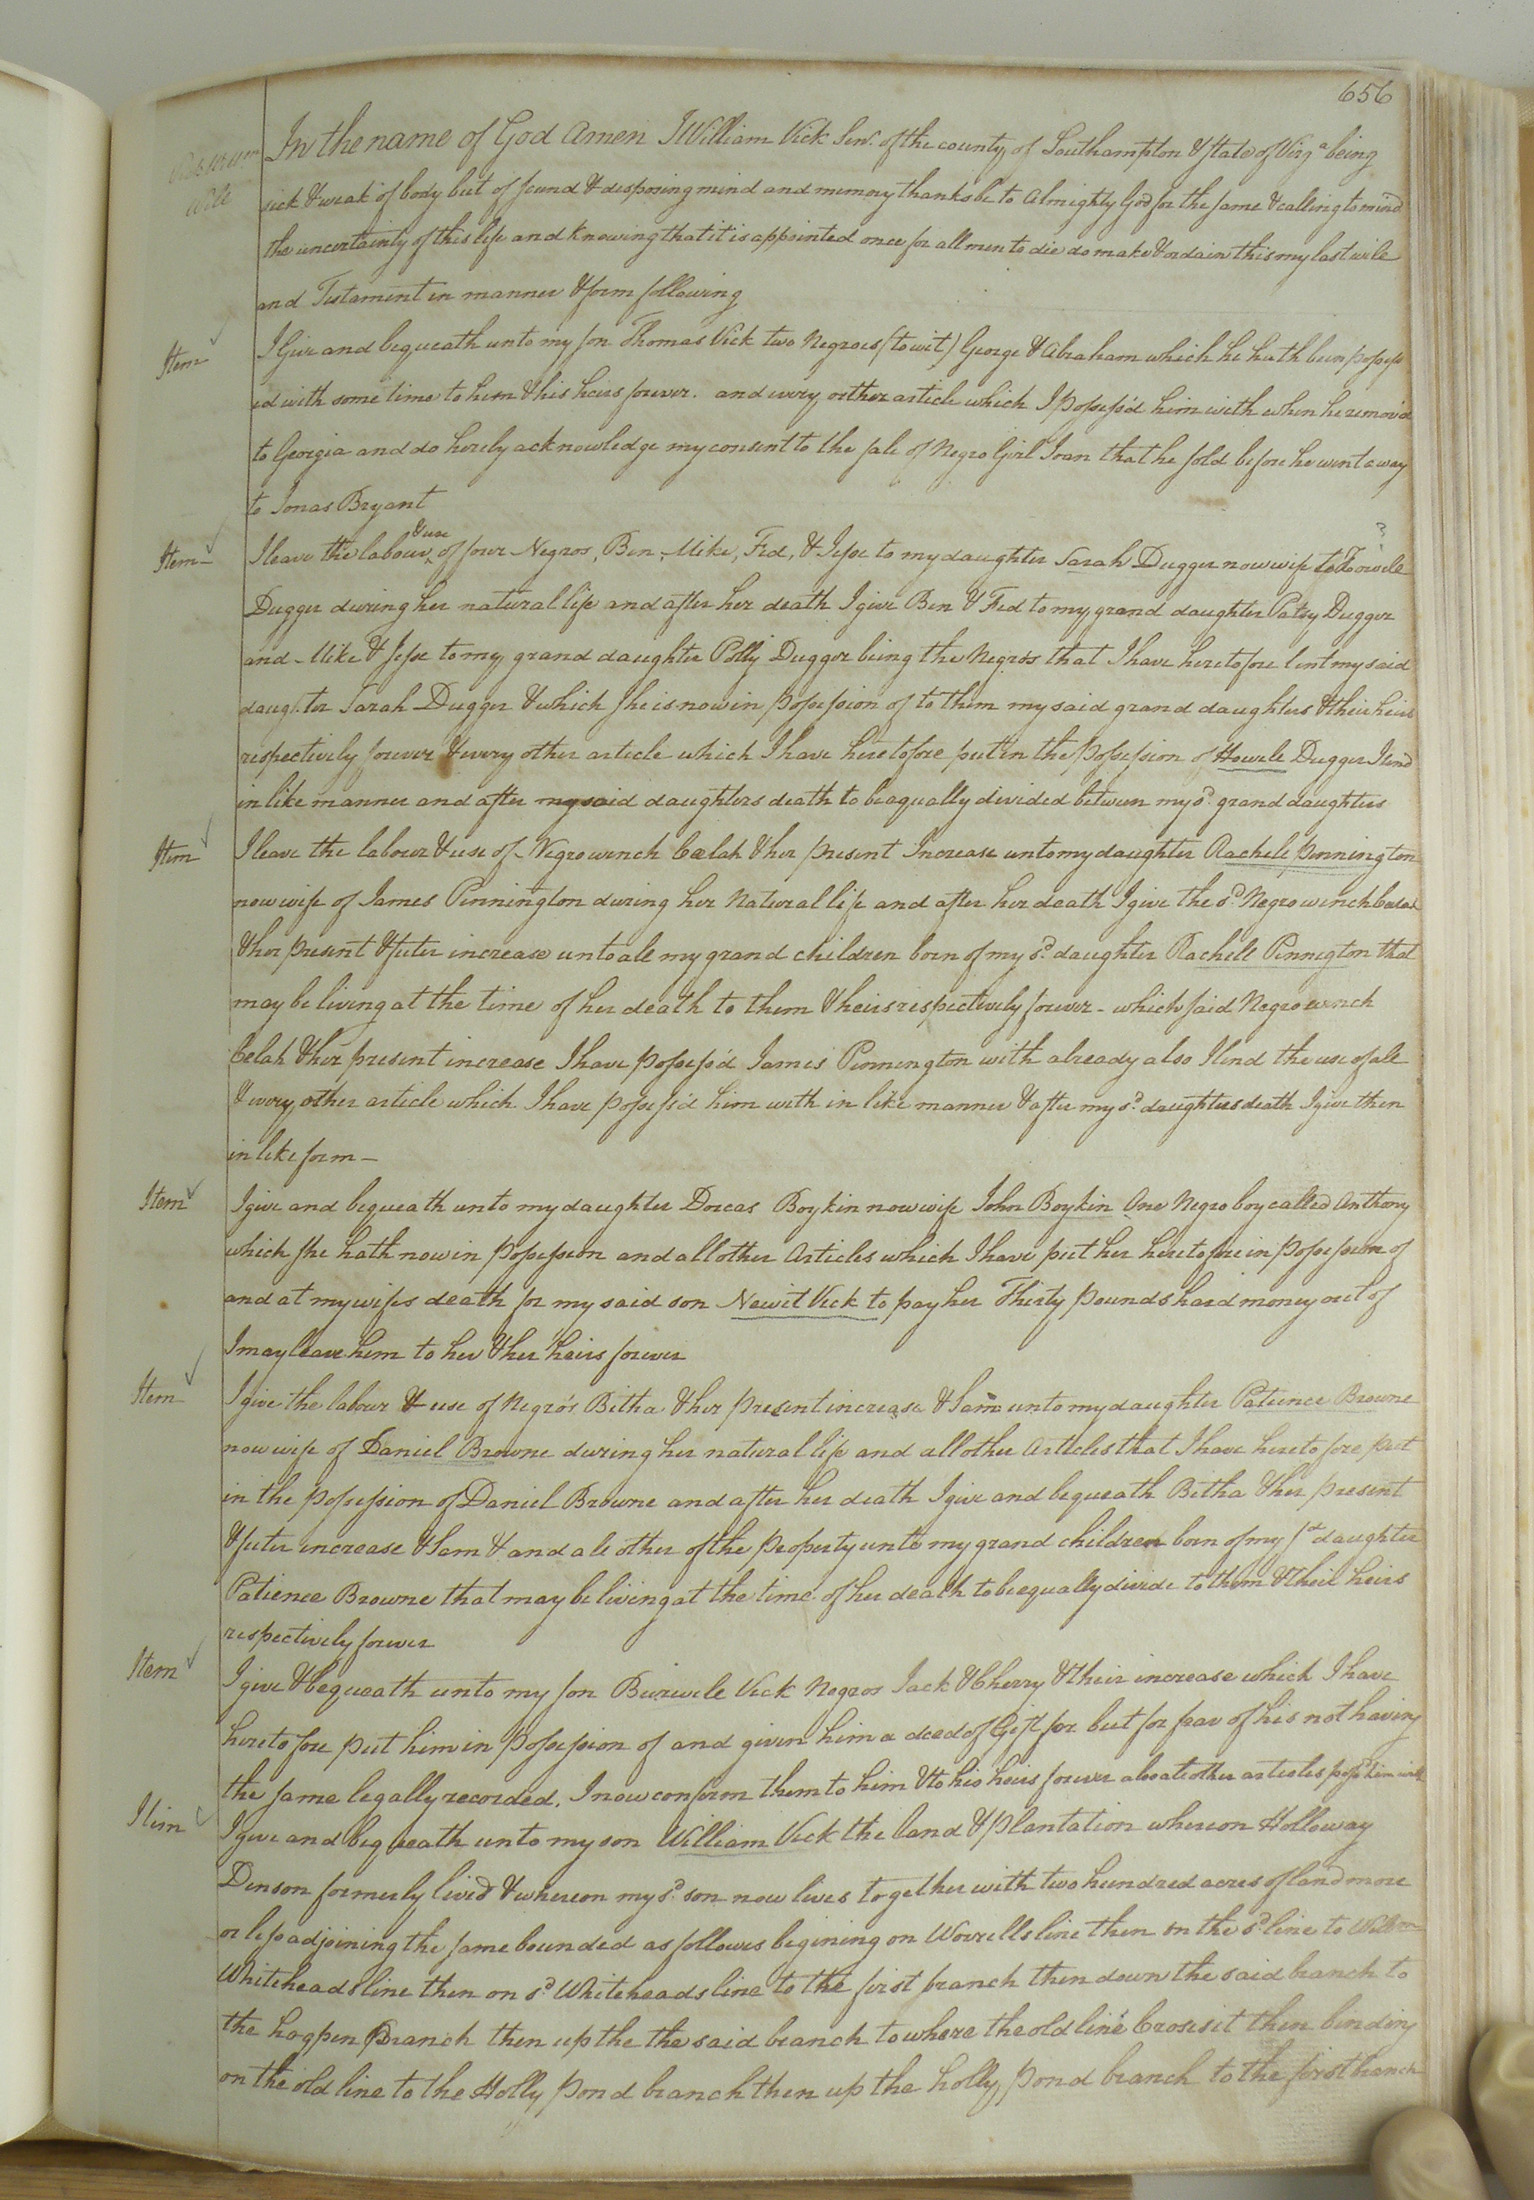 656
In the name of God Amen I William Vick Senr. of the county of Southampton & State of Virga being
Will
sick & weak of body but of sound & disposing mind and memory thanks be to Almighty God for the same & calling to mind
the uncertainty of this life and knowing that it is appointed once for all men to die do make & ordain this my last will
and Testament in manner & form following
Item I Give and bequeath unto my son Thomas Vick two Negroes (to wit) George & Abraham which he hath been possess
ed with some time to him & his heirs forever. and every other article which I Possess'd him with when he remov'd
to Georgia and do hereby acknowledge my consent to the sale of Negro Girl Joan that he sold before he went away
to Jonas Bryant
Item I leave the labour & use of four Negros, Ben, Mike, Fed, & Jesse to my daughter Sarah Dugger now wife to ?
Dugger during her natural life and after her death I give Ben & Fed to my grand daughter Patsy Dugger
and Mike & Jesse to my grand daughter Polly Dugger being the Negro's that I have heretofore lent my said
daughter Sarah Dugger & which she is now in possession of to them my said grand daughters & their heirs
respectively forever & every other article which I have heretofore put in the possession of Howele Dugger I lend
in like manner and after my said daughters death to be aqually divided between my sd. grand daughters
Item I leave the labour & use of Negro wench Celah & her present Increase unto my daughter Rachele Pennington
now wife of James Pennington during her Natural life and after her death I give the sd. Negro wench Celah
& her present & futer increase unto all my grand children born of my sd. daughter Rachell Pennigton that
may be living at the time of her death to them & heirs respectively forever - which said Negro wench
Celah & her present increase I have possess'd James Pennington with already also I lend the use of all
& every other article which I have possess'd him with in like manner & after my sd. daughters death I give then
in like form -
Item I give and bequeath unto my daughter Dorcas Boykin now wife John Boykin One Negro boy called Anthony
which she hath now in possession and all other Articles which I have put her heretofore in possession of
and at my wifes death for my said son Newit Vick to pay her Thirty Pounds hard money out of
I may leave him to her & her heirs forever
Item I give the labour & use of Negro's Bitha & her present increase & Sam unto my daughter Patience Browne
now wife of Daniel Browne during her natural life and all other Articles that I have heretofore put
in the possession of Daniel Browne and after her death I give and bequeath Bitha & her present
& futer increase & Sam & and all other of the Property unto my grand children born of my sd daughter
Patience Browne that may be living at the time of her death to be equally divide to them & their heirs
respectively forever
Item I give & bequeath unto my son Burwele Vick Negros Jack & Cherry & their increase which I have
heretofore put him in possession of and given him a deed of Gift for but for fear of his not having
the same legally recorded, I now confirm them to him & to his heirs forever also all other articles possd. him with
Item I give and bequeath unto my son William Vick the land & Plantation whereon Holloway
Denson formerly lived & whereon my sd. son now lives together with two hundred acres of land more
or less adjoining the same bounded as follows begining on Worrells line then on the sd. line to Willm
Whiteheads line then on sd. Whiteheads line to the first branch then down the said branch to
the hogpen Branch then up the the said branch to where the old line Crosses it then binding
on the old line to the Holly Pond branch then up the holly pond branch to the first branch